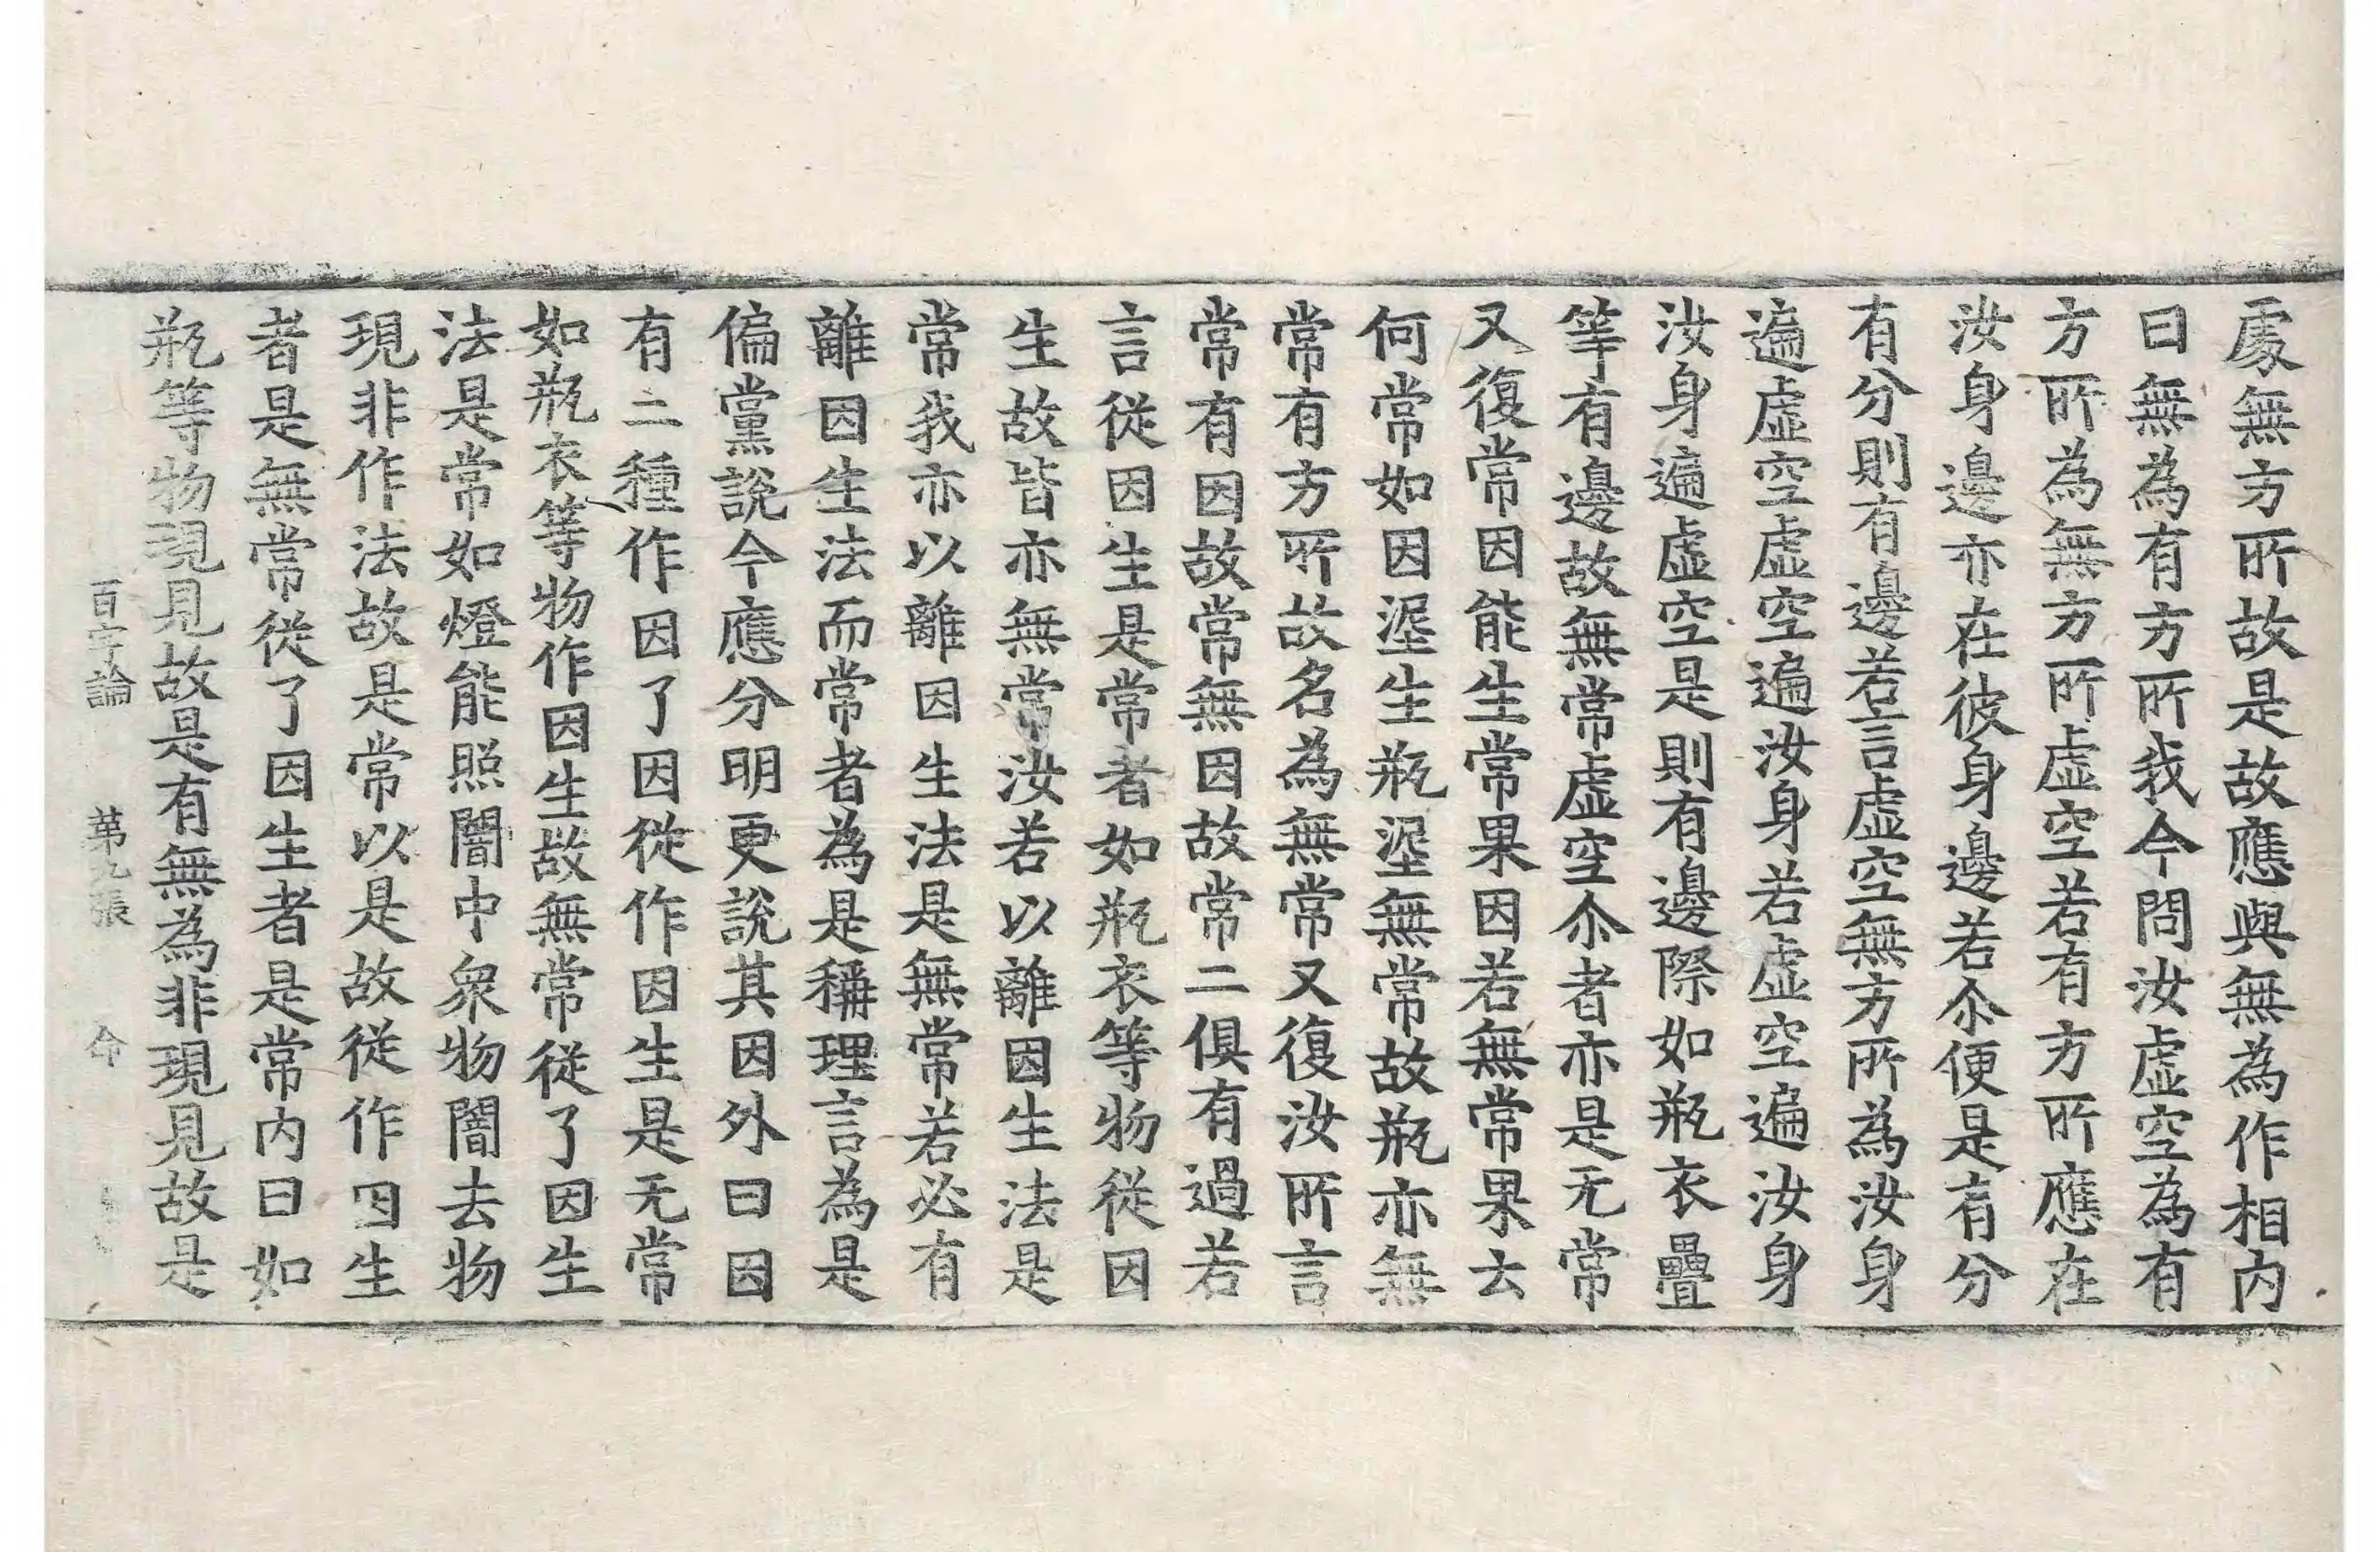 處無方所故是故應與無為作相內
曰無為有方所我今問汝虛空為有
方所為無方所虛空若有方所應在
汝身邊亦在彼身邊若尒便是有分
有分則有邊若言虛空無方所為汝身
遍虛空虛空遍汝身若虛空遍汝身
汝身遍虛空是則有邊際如瓶衣疊
等有邊故無常虛空尒者亦是无常
又復常因能生常果因若無常果云
何常如因埿生瓶埿無常故瓶亦無
常有方所故名為無常又復汝所言
常有因故常無因故常二俱有過若
言從因生是常者如瓶衣等物從因
生故皆亦無常汝若以離因生法是
常我亦以離因生法是無常若必有
離因生法而常者為是稱理言為是
偏黨說今應分明更說其因外曰因
有二種作因了因從作因生是无常
如瓶衣等物作因生故無常從了因生
法是常如燈能照闇中衆物闇去物
現非作法故是常以是故從作因生
者是無常從了因生者是常內曰如
瓶等物現見故是有無為非現見故是
百字論 第九張 令